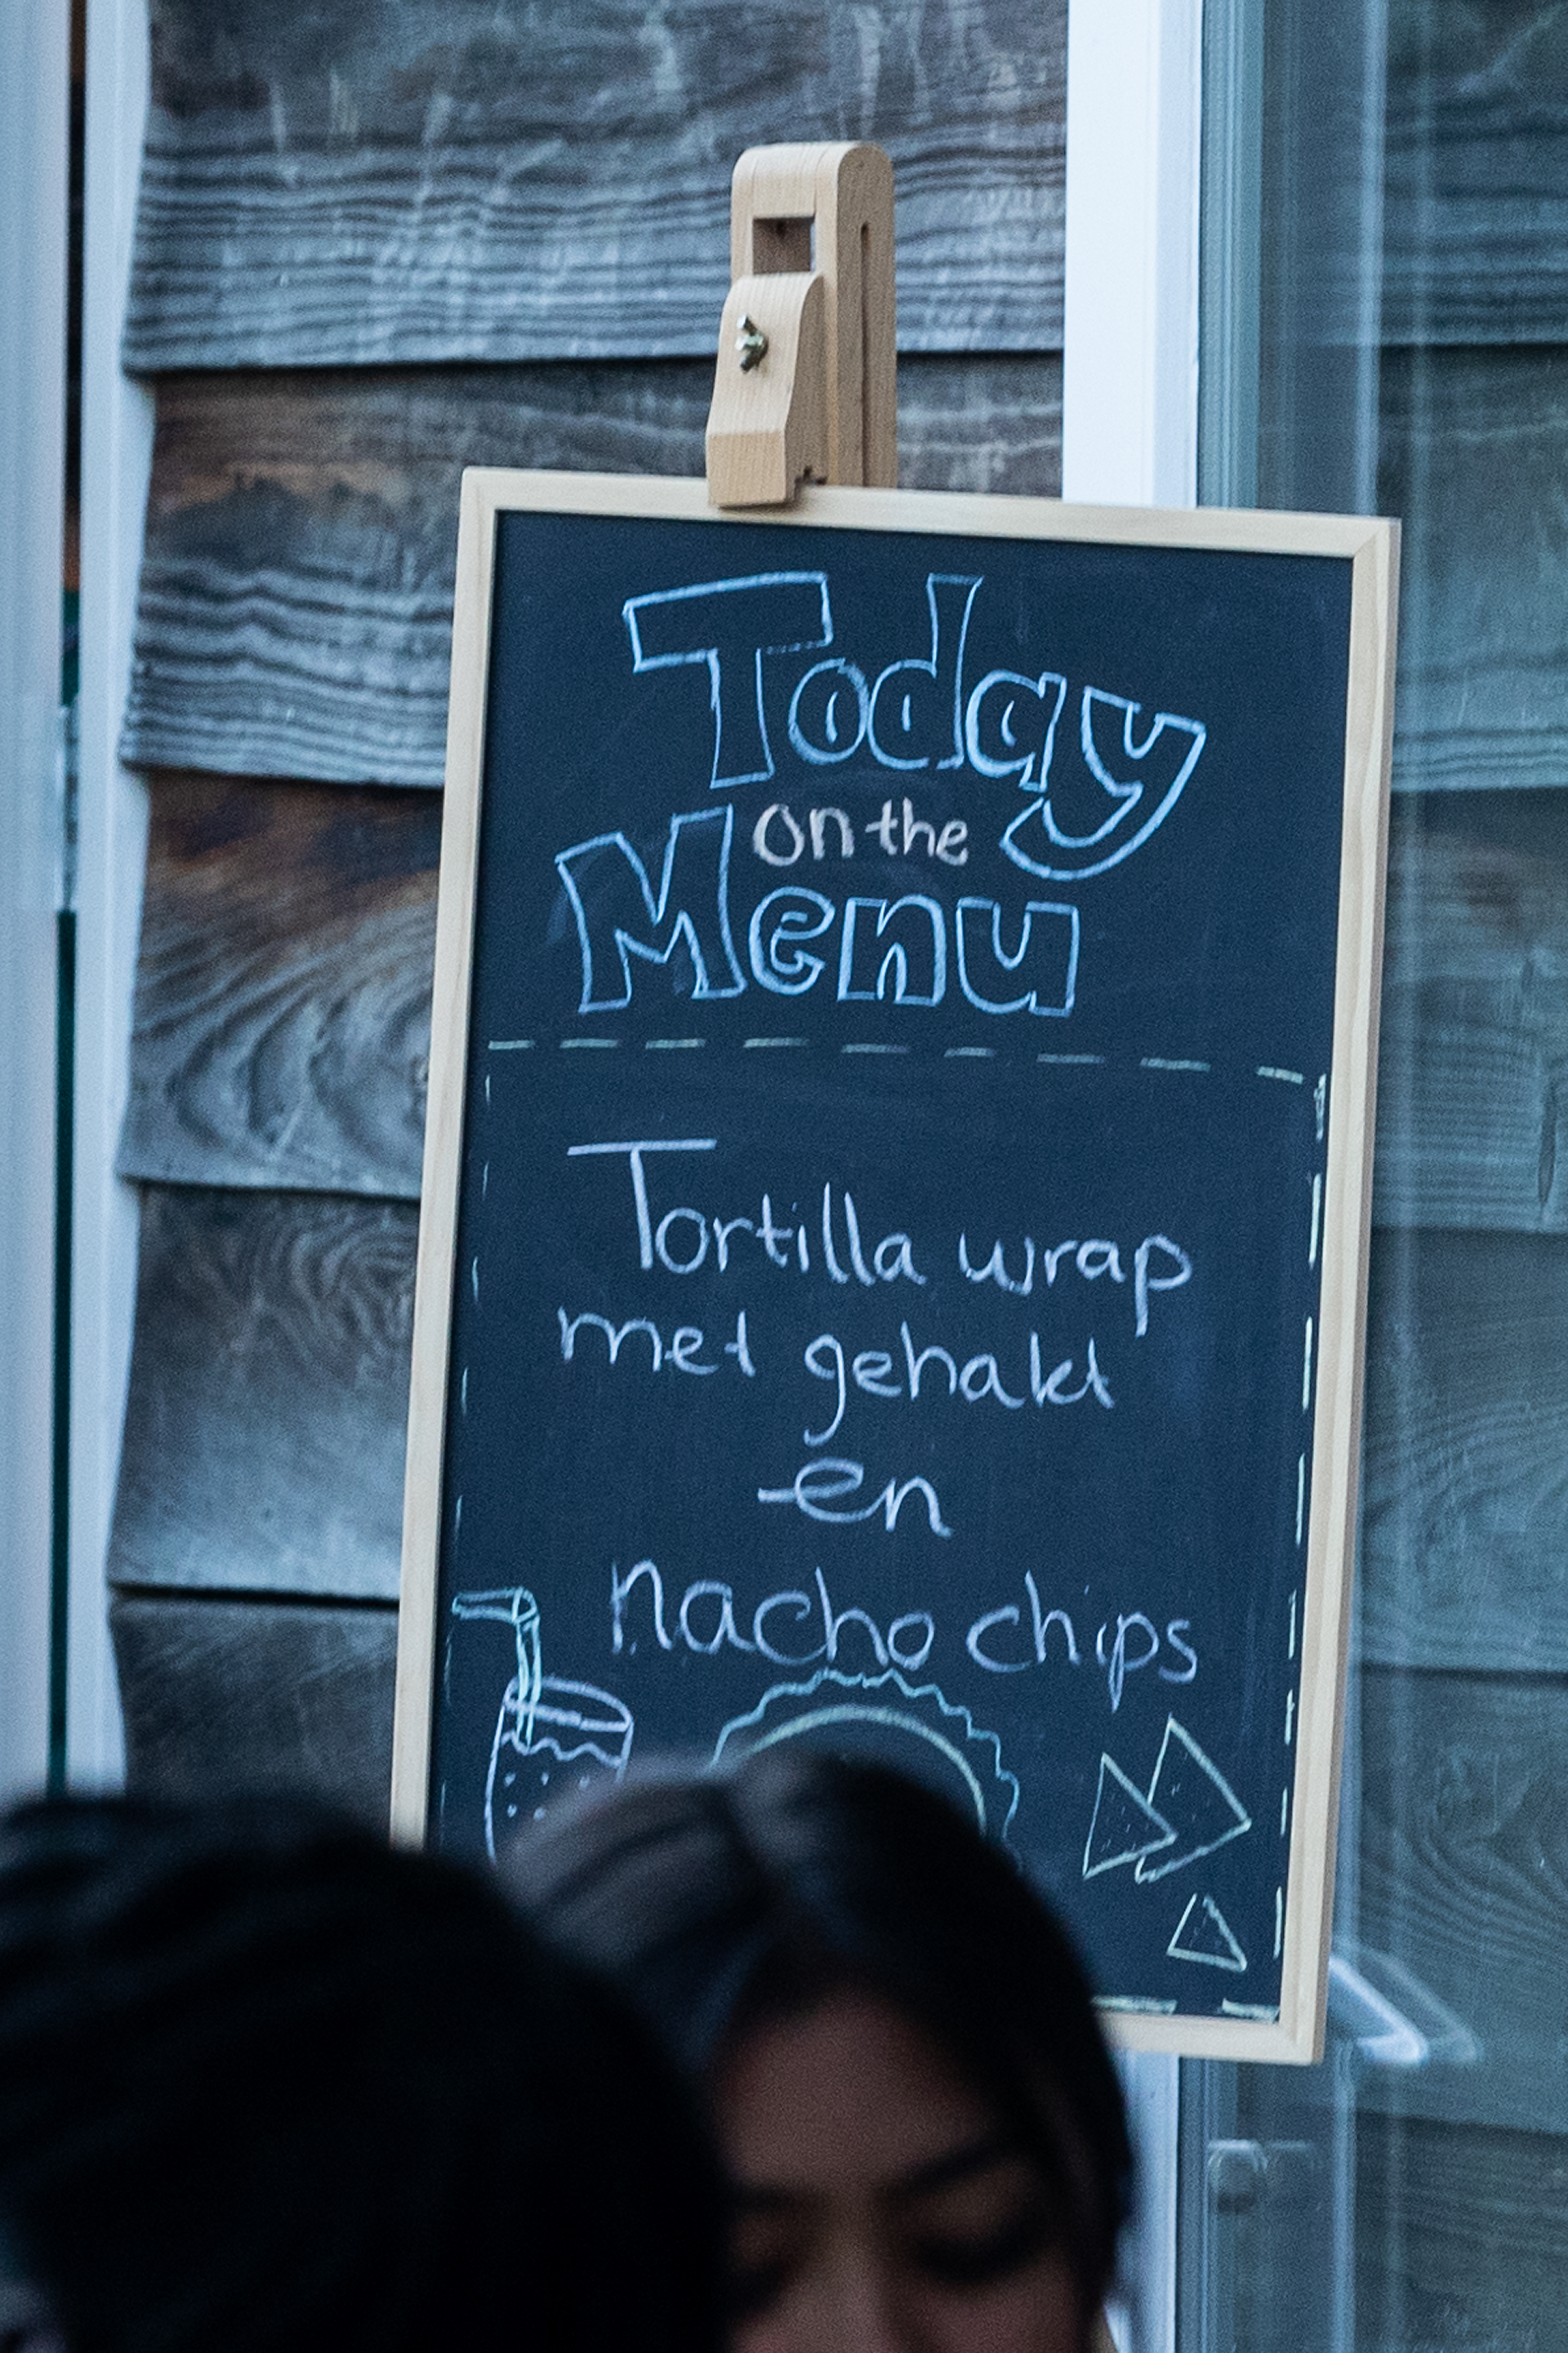 Today
on the
Menu
Tortilla wrap
met gehakt
en
nacho chips